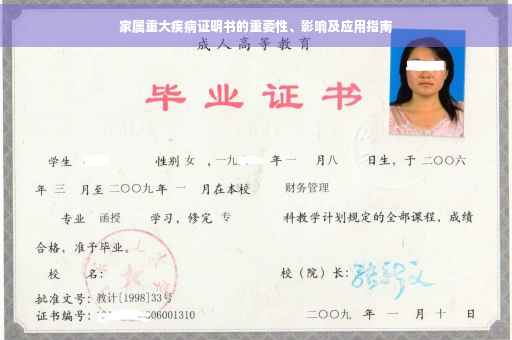 家属重大疾病证明书的重要性、影响及应用指南
成人高等教育
毕业证书
学生 性别 女 ，一九 年 一 月八 日生，于 二〇〇六
年 三 月至 二〇〇九 年 一 月在本校 财务管理
专业 函授 学习，修完 专 科教学计划规定的全部课程，成绩
合格，准予毕业。
校 名： 校（院）长：
批准文号：教计[1998]33号
证书编号： 06001310 二〇〇九 年 一 月 十 日